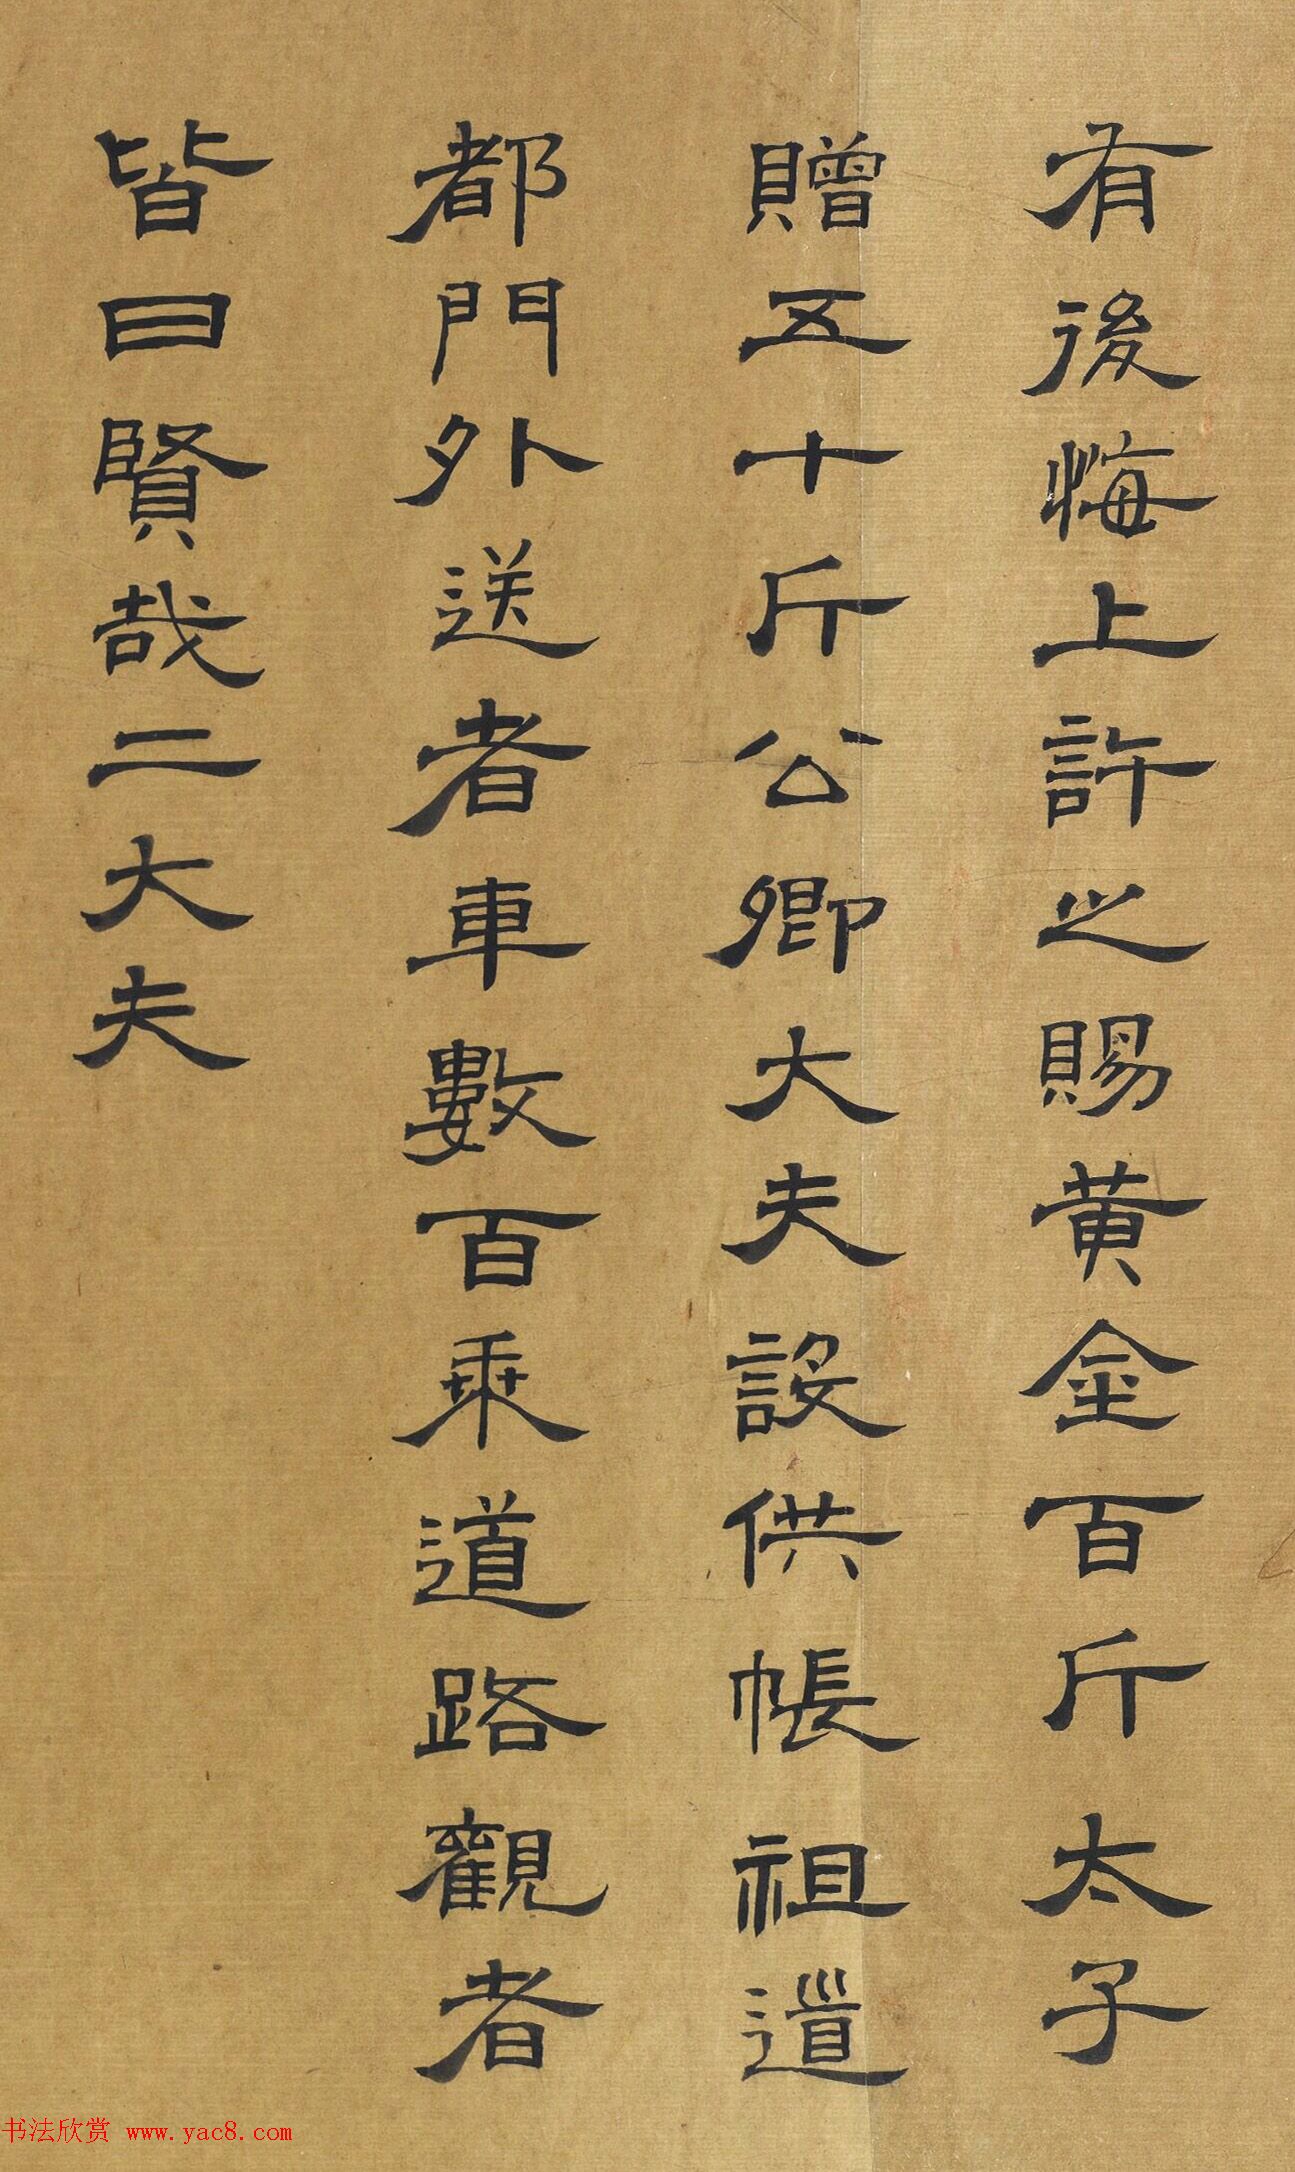 有後悔上許之賜黃金百斤太子
贈五十斤公卿大夫設供帳祖道
都門外送者車數百乘道路觀者
皆曰賢哉二大夫
书法欣赏 www.yac8.com